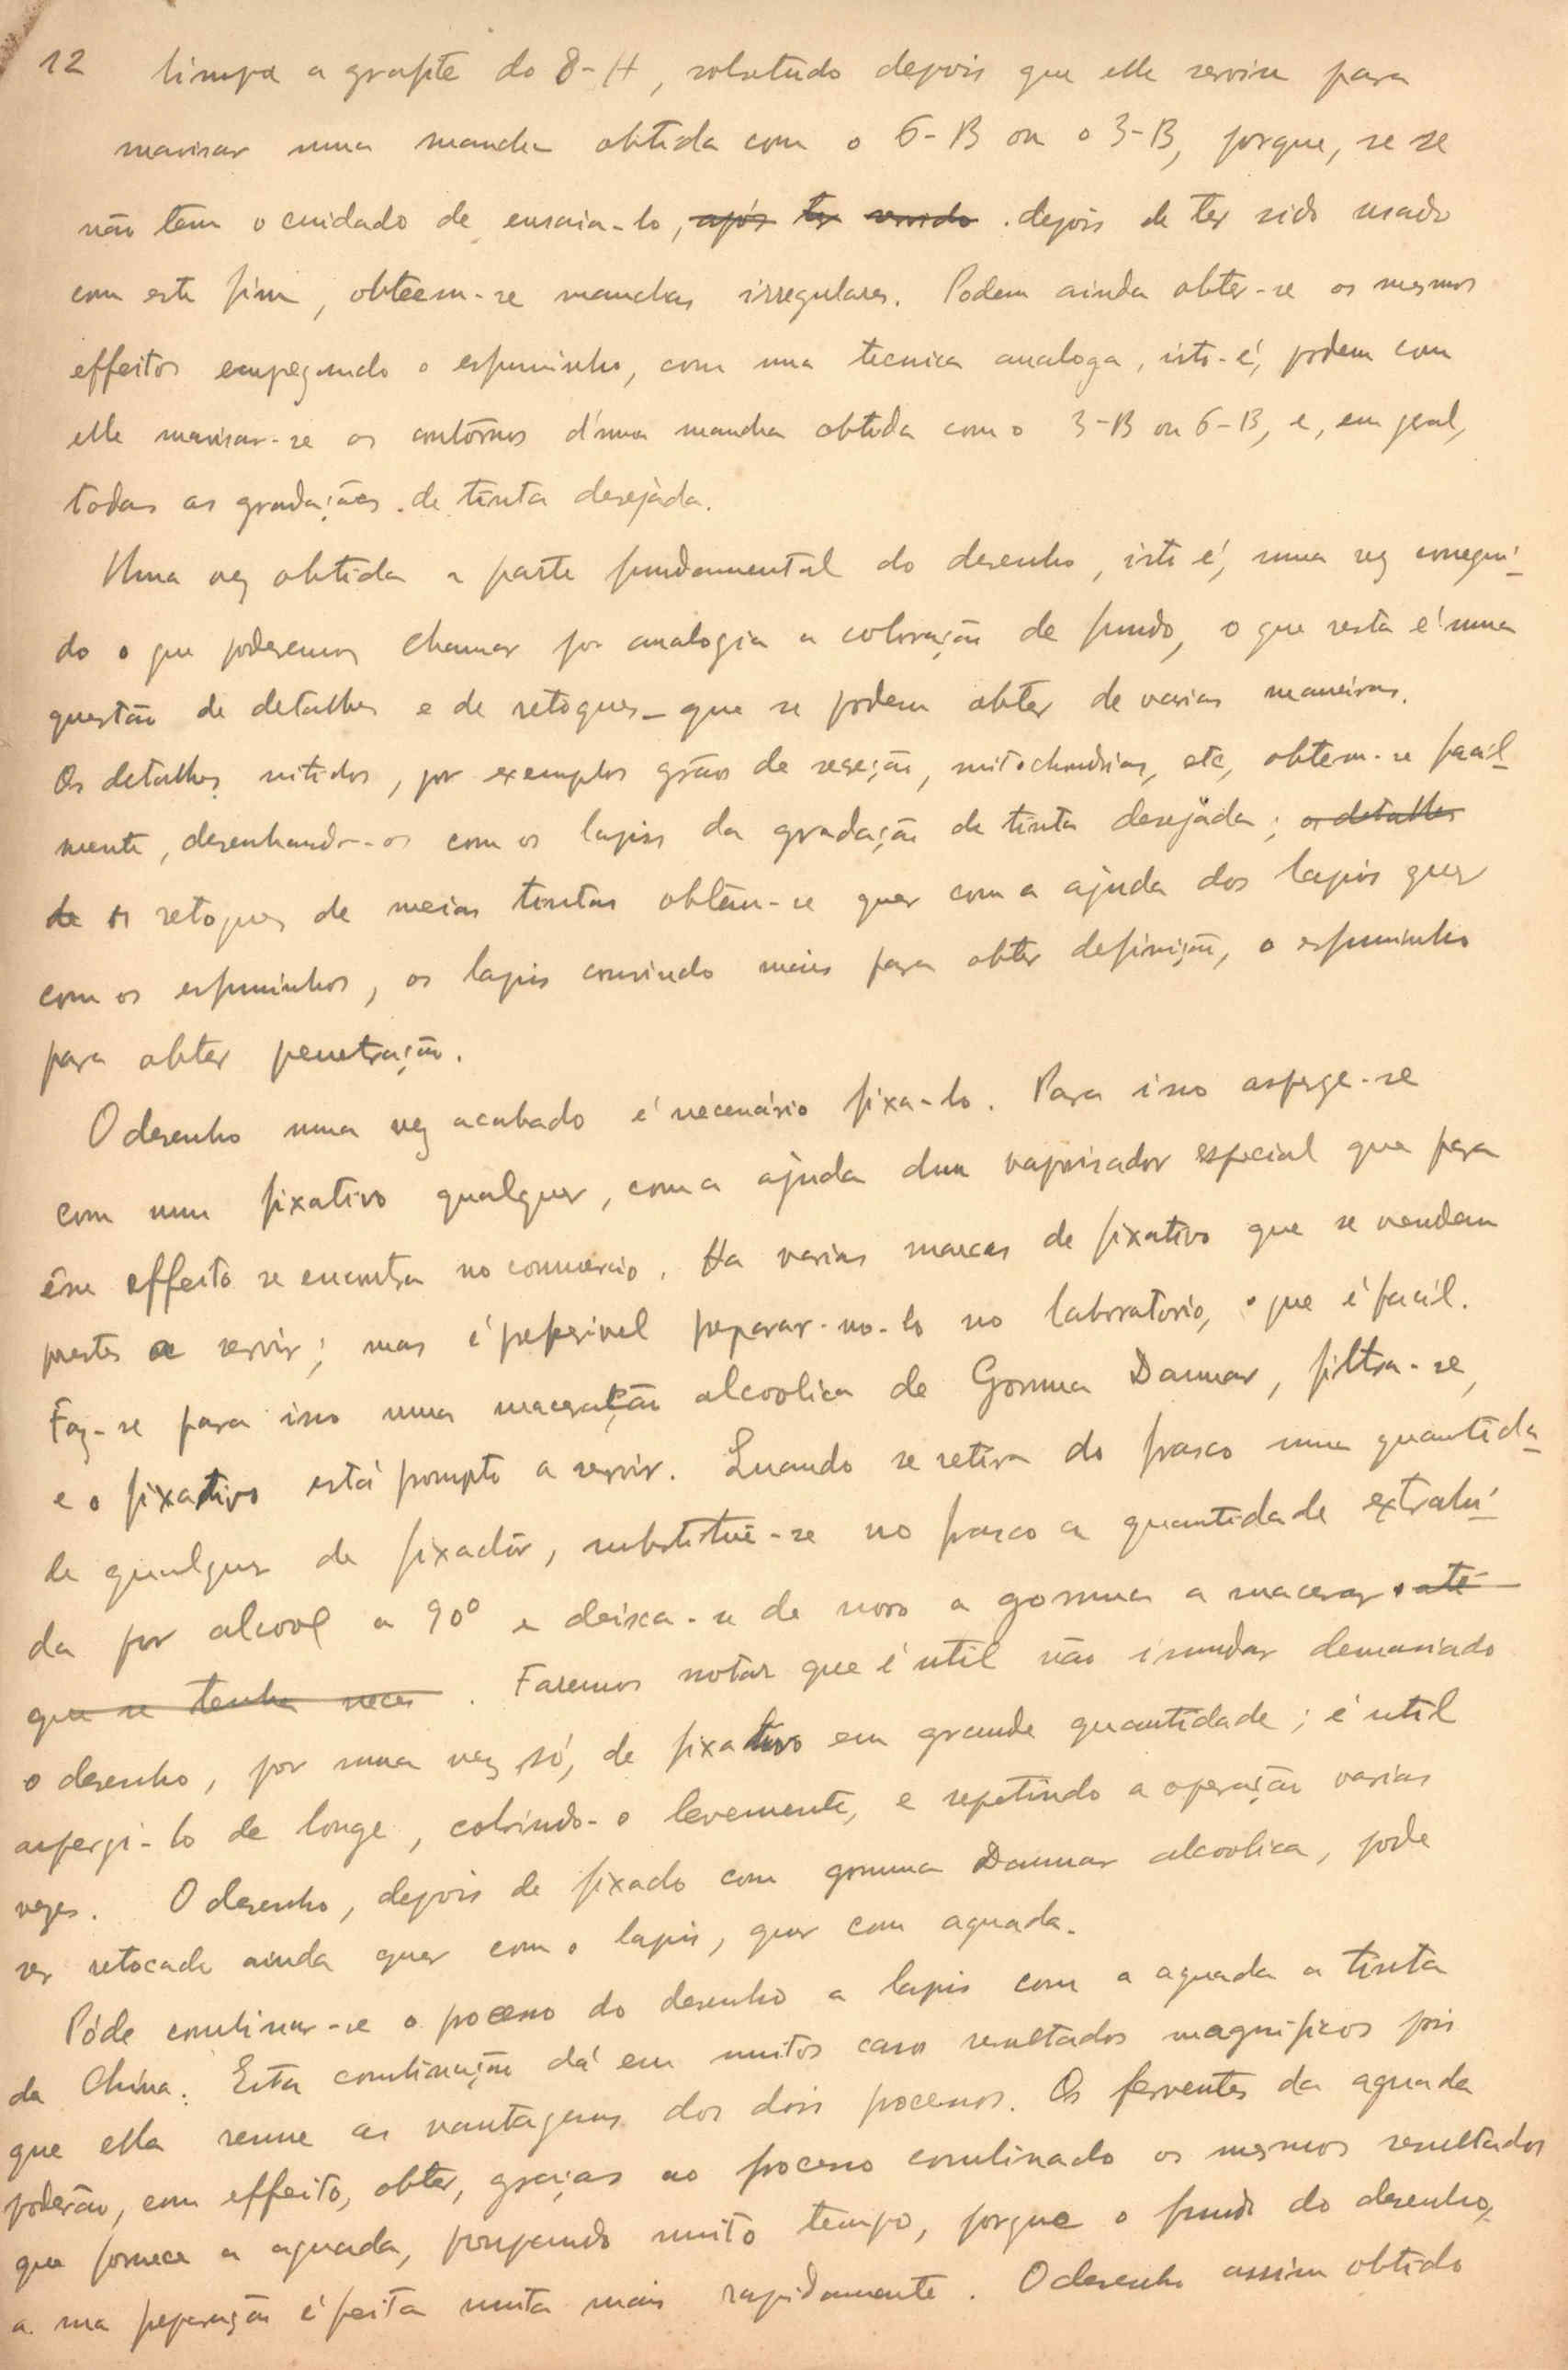 12 limpa a grafite do 8-H, sobretudo depois que elle serviu para
mavisar uma mancha obtida com o 6-B ou o 3-B, porque, se se
não tem o cuidado de ensaia-lo, após ter servido . depois de ter sido usado
com este fim, obteem-se manchas irregulares. Podem ainda obter-se os mesmos
effeitos empegando o esfuminho, com uma tecnica analoga, isto-é, podem com
elle mavisar-se os contôrnos d'uma mancha obtida com o 3-B ou 6-B, e, em geral,
todas as gradações de tinta desejada.
Uma vez obtida a parte fundamental do desenho, isto é, uma vez consegui-
do o que poderemos chamar por analogia a coloração de fundo, o que resta é uma
questão de detalhes e de retoques - que se podem obter de varias maneiras.
Os detalhes nitidos, por exemplos grãos de seseção, mitochondrias, etc, obtem-se facil-
mente, desenhando-os com os lapis da gradação de tinta desejada; os detalhes
de os retoques de meias tintas obtem-se quer com a ajuda dos lapis quer
com os esfuminhos, os lapis convindo mais para obter definição, o esfuminho
para obter penetração.
O desenho uma vez acabado é necessário fixa-lo. Para isso asperge-se
com um fixativo qualquer, com a ajuda dum vaporisador especial que para
êsse effeito se encontra no commercio. Ha varias marcas de fixativo que se vendem
prestes a servir; mas é preferivel preparar-no-lo no laboratorio, o que é facil.
Faz-se para isso uma maceração alcoolica de Gomma Dammar, filtra-se,
e o fixativo está prompto a servir. Quando se retira do frasco uma quantida-
de qualquer de fixadôr, substitue-se no frasco a quantidade extrahi-
da por alcool a 90° e deixa-se de novo a gomma a macerar . até
que se tenha neces . Faremos notar que é util não inundar demasiado
o desenho, por uma vez só, de fixativo em grande quantidade; é util
aspergi-lo de longe, cobrindo-o levemente, e repetindo a operação varias
vezes. O desenho, depois de fixado com gomma Dammar alcoolica, pode
ser retocado ainda quer com o lapis, quer com aguada.
Póde combinar-se o pocesso do desenho a lapis com a aguada a tinta
da China. Esta combinação dá em muitos caso resultados magnificos pois
que ella reune as vantagens dos dois pocessos. Os ferventes da aguada
poderão, com effeito, obter, graças ao processo combinado os mesmos resultados
que fornece a aguada, poupando muito tempo, porque o fundo do desenho,
a sua peparação é feita muita mais rapidamente. O desenho assim obtido